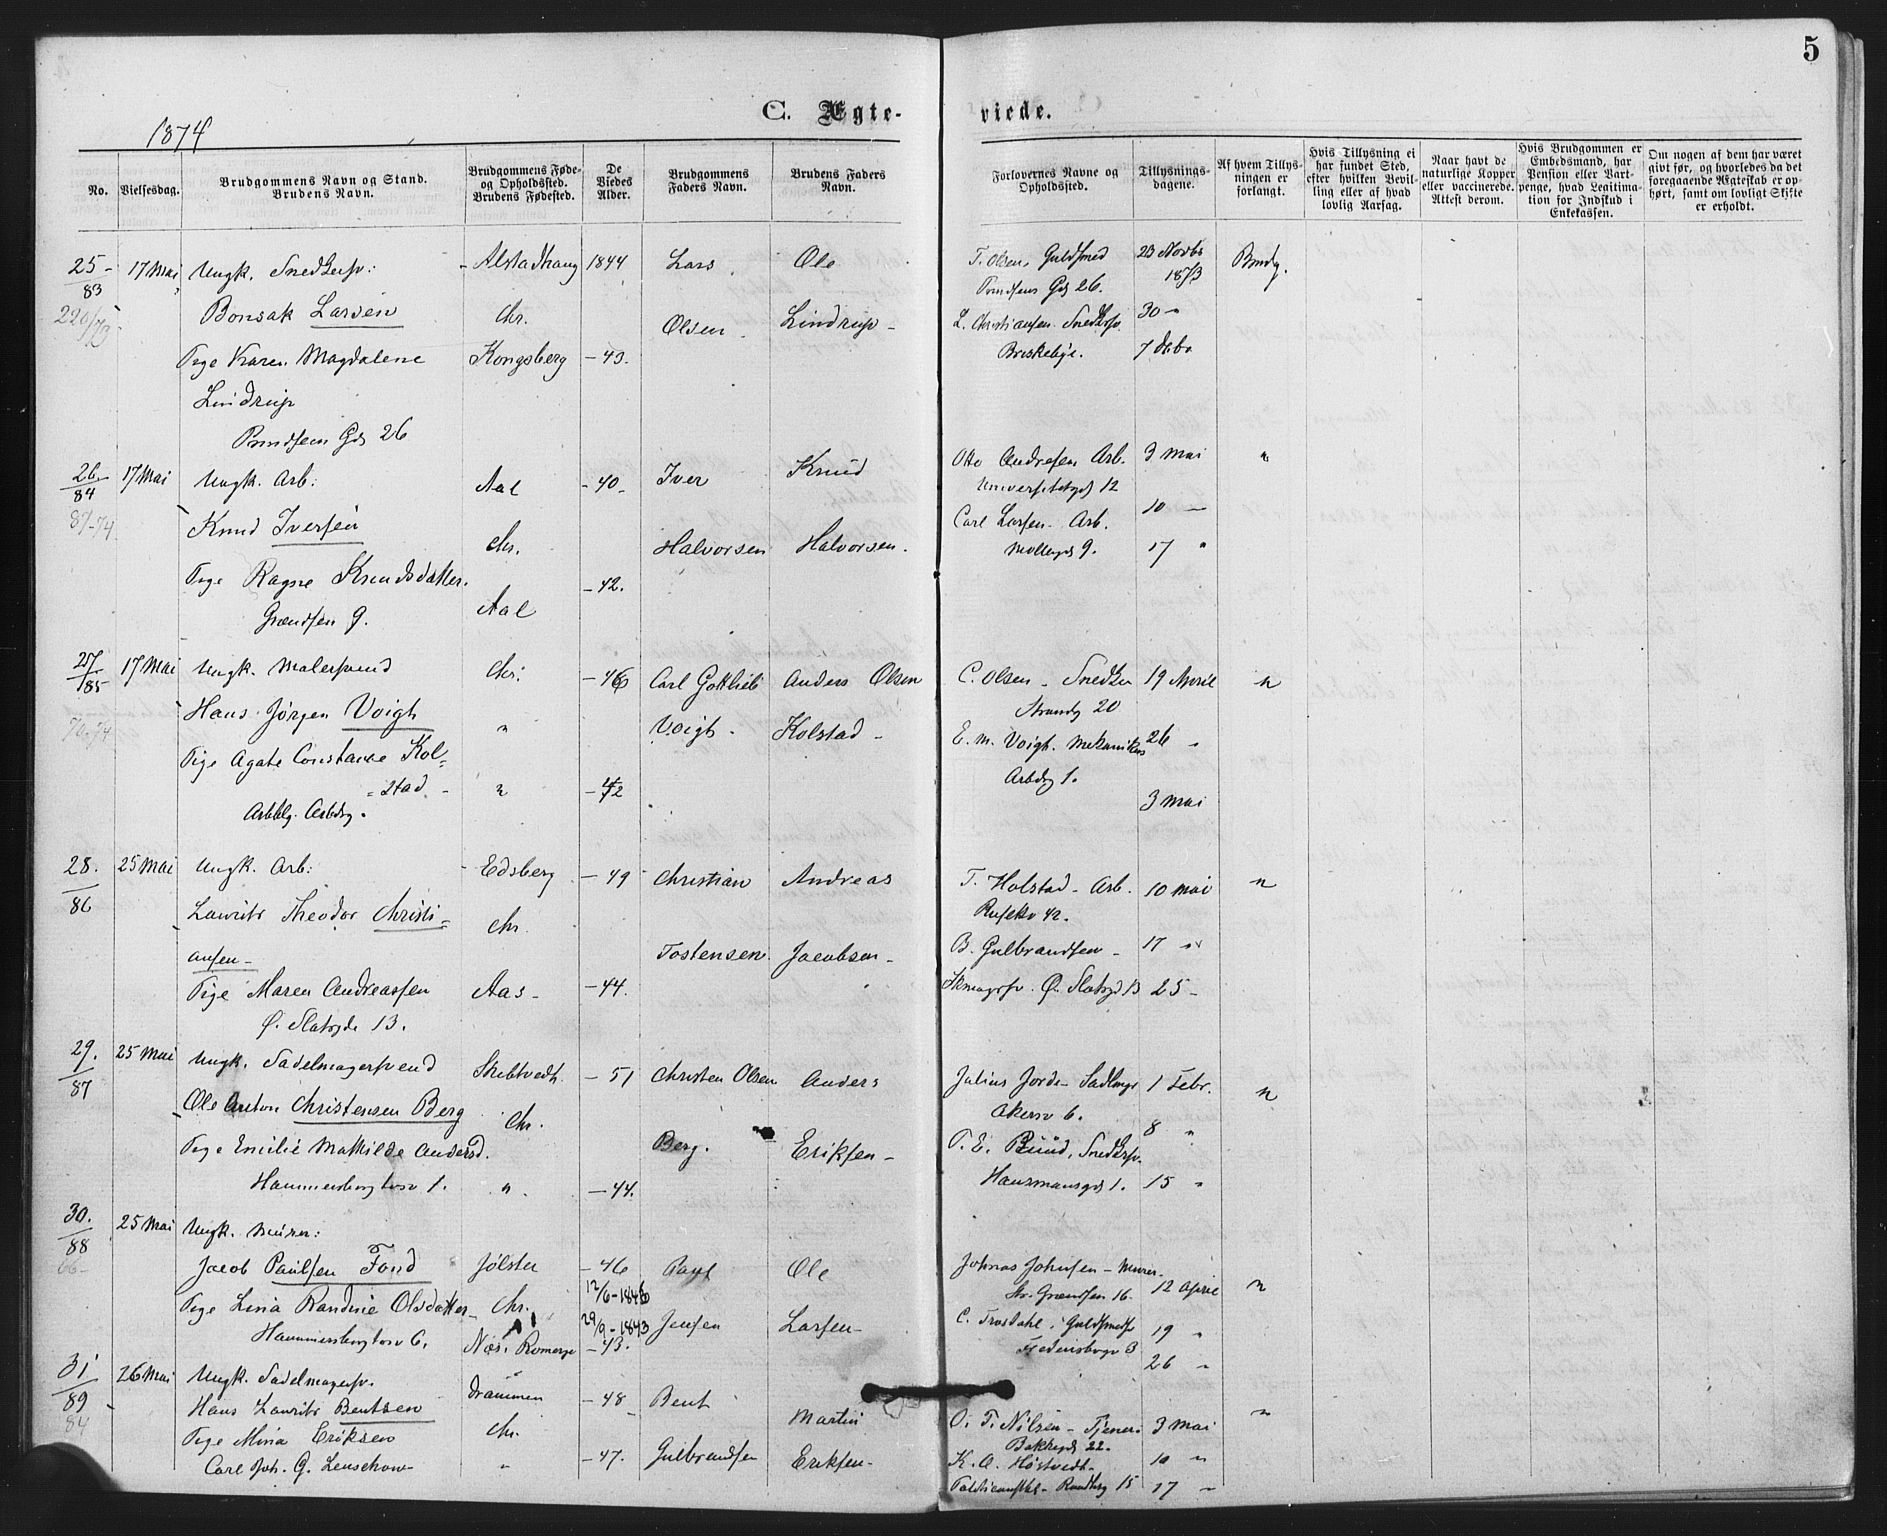 5
C. Ægteviede.
1874
No.
Vielsesdag.
Brudgommens Navn og Stand.
Brudens Navn.
Brudgommens Føde-
og Opholdssted.
Brudens Fødested.
De
Viedes
Alder.
Brudgommens
Faders Navn.
Brudens Faders
Navn.
Forlovernes Navne og
Opholdssted.
Tillysnings-
dagene.
Af hvem Tillys-
ningen er
forlangt.
Hvis Tillysning ei
har fundet Sted,
efter hvilken Bevil-
ling eller af hvad
lovlig Aarsag.
Naar havt de
naturlige Kopper
eller vaccinerede.
Attest derom.
Hvis Brudgommen er
Embedsmand, har
Pension eller Vart-
penge, hvad Legitima-
tion for Indskud i
Enkekassen.
Om nogen af dem har været
givt før, og hvorledes da det
foregaaende Ægteskab er op-
hørt, samt om lovligt Skifte
er erholdt.
25 - 17 Mai Ungk. Snedkersv: Alstadhaug 1844 Lars Ole T. Olsen, Guldsmed 23 Novbr Brudg.
83 Gds 26. 1873
220/73 Bonsak Larsen Chr. Olsen Lindrup - L. Christiansen Snedkersv. 30 "
Pige Karen Magdalene Kongsberg - 43. Briskebye. 7 Debr
Lindrup
Gds 26
26 17 Mai Ungk. Arb: Aal - 40 - Iver Knud Otto Andresen Arb. 3 Mai "
84 Universitetsgd 12
87-74 Knud Iversen Chr. Halvorsen Halvorsen. Carl Larsen - Arb. 10 -
Møllergd 9. 17 "
Pige Ragne Knudsdatter. - 42.
Grændsen 9. Aal
27 17 Mai Ungk. Malersvend Chr: - 46 Carl Gottlieb Anders Olsen C. Olsen - Snedker 19 April "
85 Strandg 20
76-74 Hans Jørgen Voigt " Voigt - Kolstad - E. M. Voigt. Mekanikus 26 "
Pige Agate Constance Kol= Arbdg 1.
= stad - " - 42 3 Mai
Arbblg. Arbdg.
28. 25 Mai Ungk. Arb: Edsberg - 49 Christian Andreas T. Holstad - Arb. 10 Mai "
86 42.
Lauritz Theodor Christi= Chr.
ansen - Tostensen Jacobsen - B. Gulbrandsen - 17 "
Pige Maren Andreassen Aas - - 44. Skmagrsv. Ø. Slotsgd 13 25 -
Ø. Slotsgde 13.
29. 25 Mai Ungk. Sadelmagersvend Skibtvedt. - 51 Christen Olsen Anders Julius Jorde - Sadlmgr 1 Febr. "
87 Akersv 6.
Ole Anton Christensen Berg Chr. 8 "
Pige Emilie Mathilde Andersd. Berg. Eriksen - Snedkersv.
Hammersborgtorv 1. " - 44. Hausmansgd 1. 15 "
30. 25 Mai Ungk. Murer:
88
66- Jacob Paulsen Fond Jølster - 46 Ole Johnas Johnsen - Murer.
12/6-1846 Str. Grændsen 16. 12 April "
Pige Lina Randine Olsdatter - Chr. 29/9-1843 Jensen Larsen - Guldsmedsv 19 "
Hammersborgtorv 6. Næs. Romerge - 43. 3 26 "
31 26 Mai Ungk. Sadelmagersv. Drammen - 48 Bent "
89 Hans Lauritz Bentsen - Martin O. T. Nilsen - Tjener: 3 Mai
84 Pige Mina Eriksen Chr. Bakkegd 22.
Carl Joh. G. Lenschow " - 47. Gulbrandsen Eriksen - K. A. Høstvedt - 10 "
15 17 "